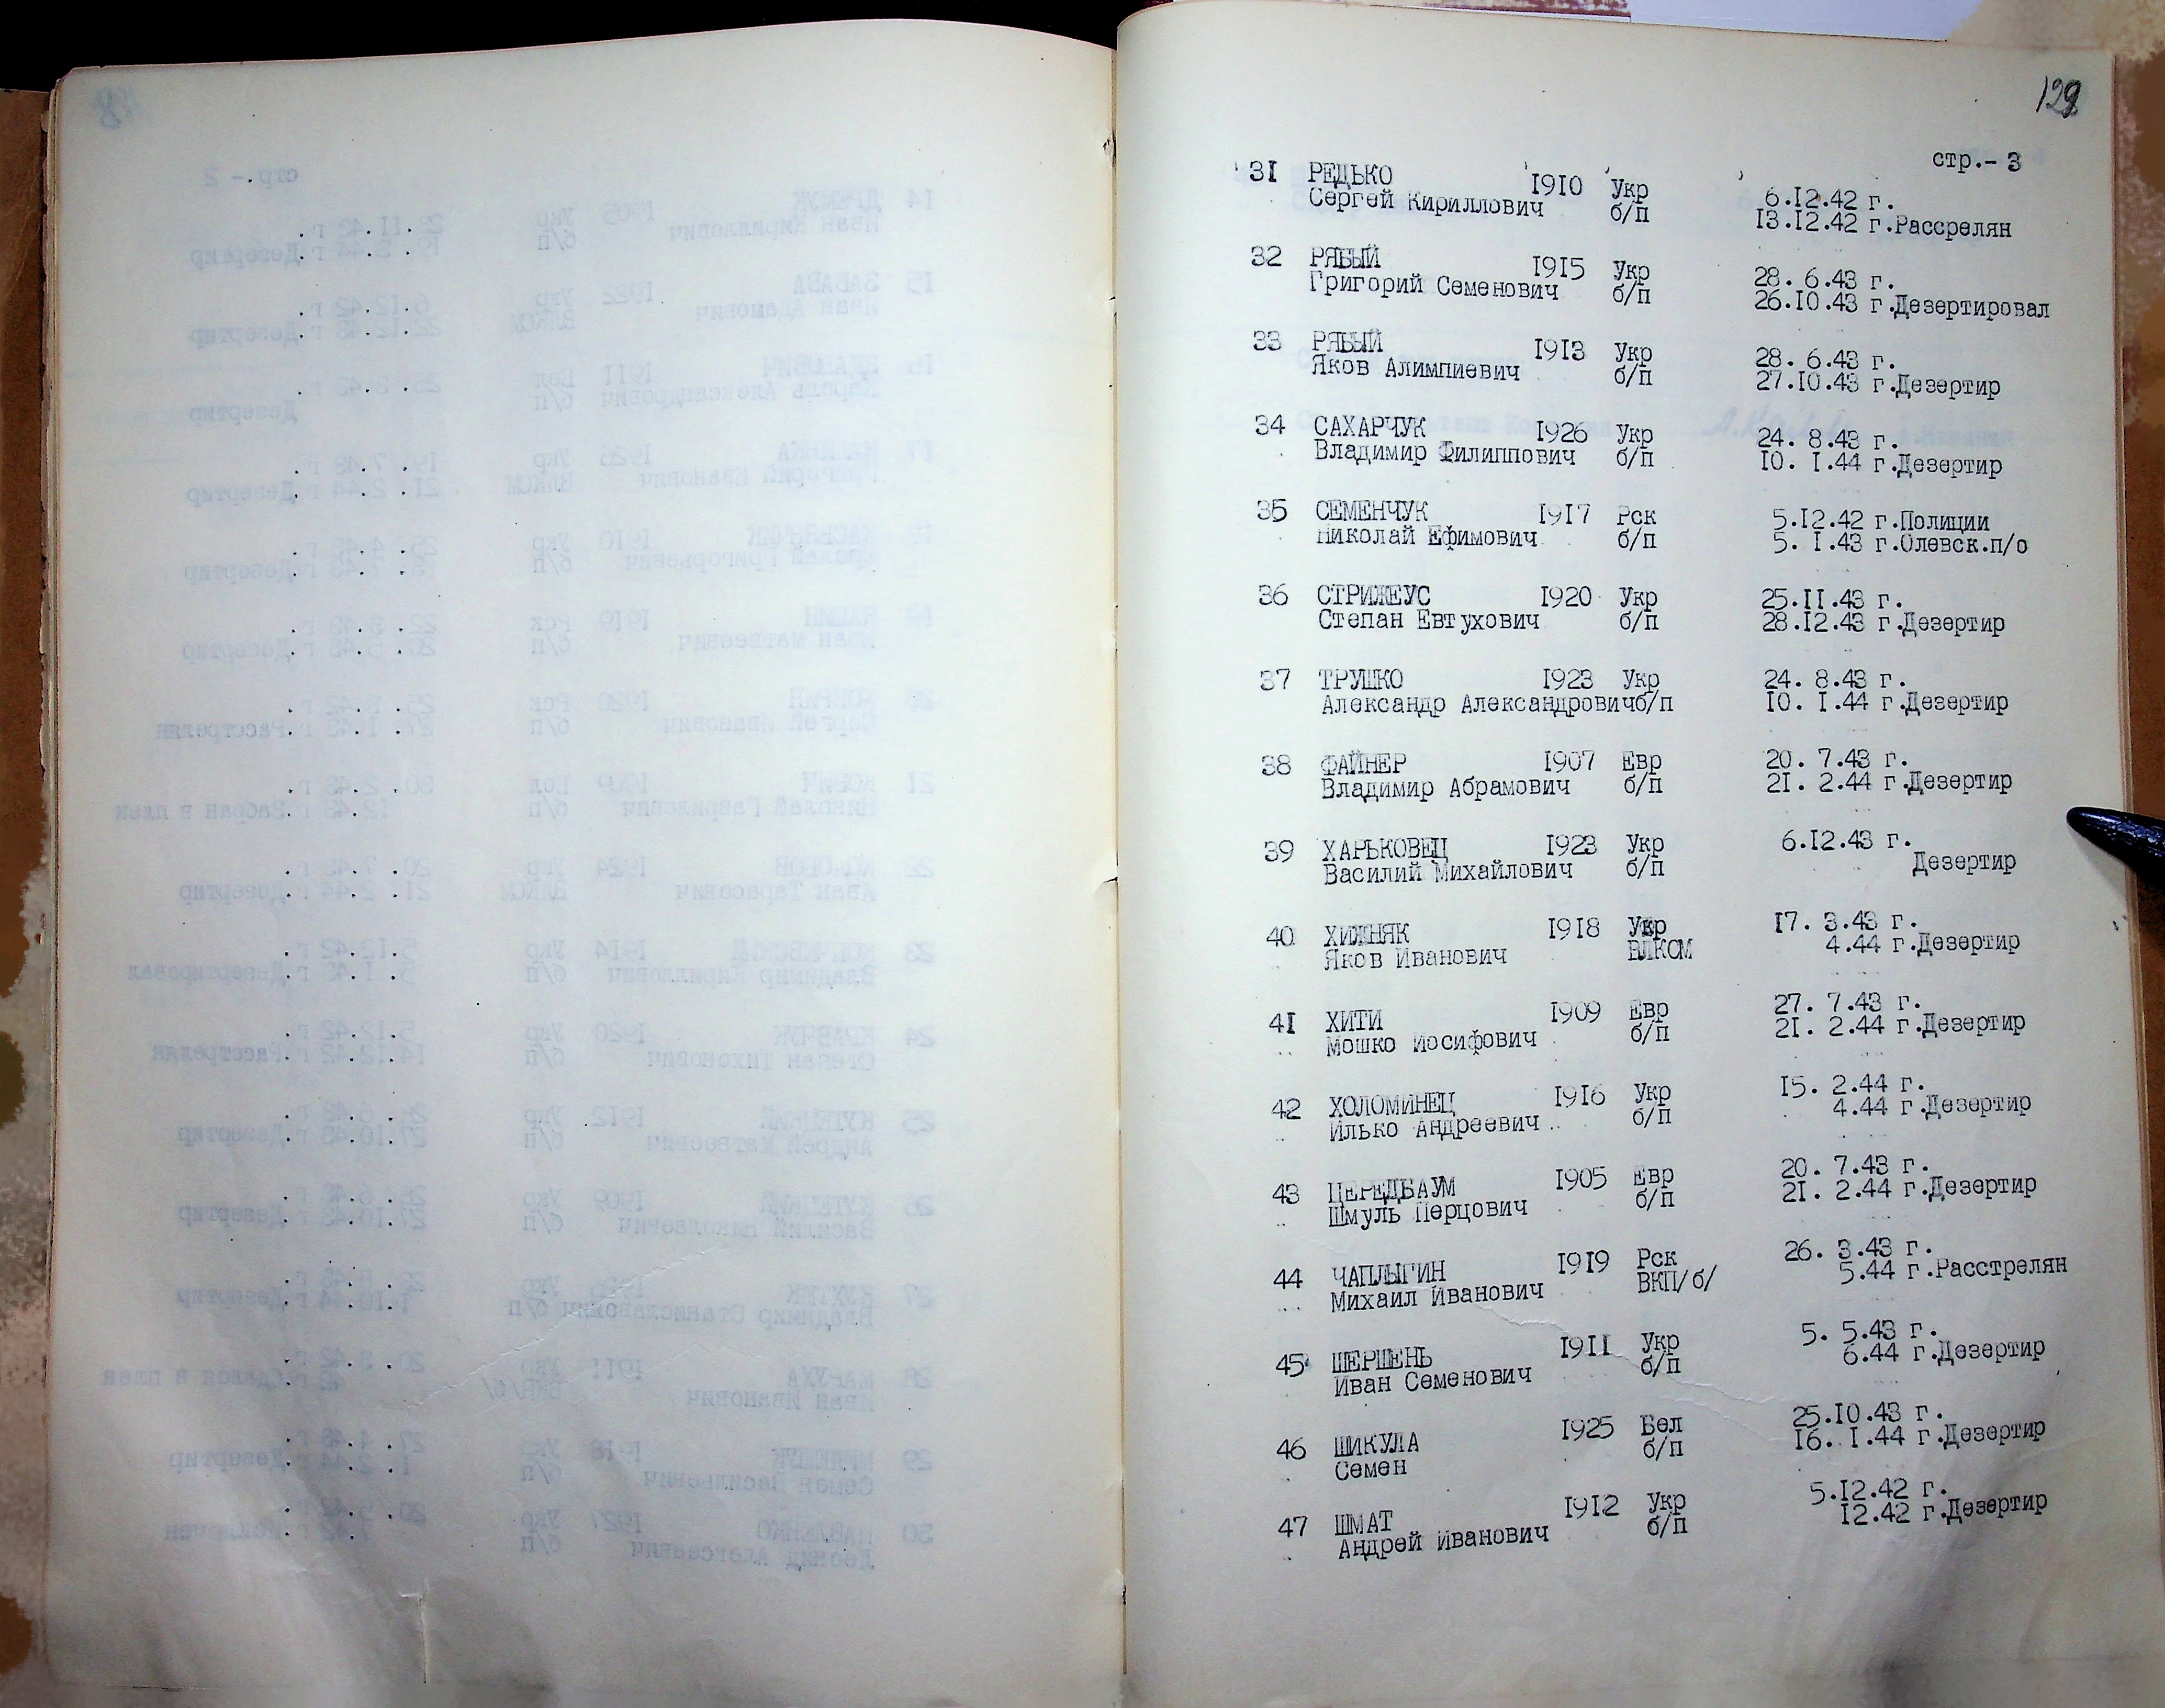 129
стр.- 3
31 РЕДЬКО 1910 Укр 6.12.42 г.
Сергей Кириллович б/п 13.12.42 г.Рассрелян
32 РЯБЫЙ 1915 Укр 28. 6.43 г.
Григорий Семенович б/п 26.10.43 г.Дезертировал
33 РЯБЫЙ 1913 Укр 28. 6.43 г.
Яков Алимпиевич б/п 27.10.43 г.Дезертир
34 САХАРЧУК 1926 Укр 24. 8.43 г.
Владимир Филиппович б/п 10. 1.44 г.Дезертир
35 СЕМЕНЧУК 1917 Рск 5.12.42 г.Полиции
Николай Ефимович б/п 5. 1.43 г.Олевск.п/о
36 СТРИЖЕУС 1920 Укр 25.11.43 г.
Степан Евтухович б/п 28.12.43 г.Дезертир
37 ТРУШКО 1923 Укр 24. 8.43 г.
Александр Александровичб/п 10. 1.44 г.Дезертир
38 ФАЙНЕР 1907 Евр 20. 7.43 г.
Владимир Абрамович б/п 21. 2.44 г.Дезертир
39 ХАРЬКОВЕЦ 1923 Укр 6.12.43 г.
Василий Михайлович б/п Дезертир
40 ХИЖНЯК 1918 Укр 17. 3.43 г.
Яков Иванович ВЛКСМ 4.44 г.Дезертир
41 ХИТИ 1909 Евр 27. 7.43 г.
Мошко Иосифович б/п 21. 2.44 г.Дезертир
42 ХОЛОМИНЕЦ 1916 Укр 15. 2.44 г.
Илько Андреевич б/п 4.44 г.Дезертир
43 ЦЕРЕДБАУМ 1905 Евр 20. 7.43 г.
Шмуль Перцович б/п 21. 2.44 г.Дезертир
44 ЧАПЛЫГИН 1919 Рск 26. 3.43 г.
Михаил Иванович ВКП/б/ 5.44 г.Расстрелян
45 ШЕРШЕНЬ 1911 Укр 5. 5.43 г.
Иван Семенович б/п 6.44 г.Дезертир
46 ШИКУЛА 1925 Бел 25.10.43 г.
Семен б/п 16. 1.44 г.Дезертир
47 ШМАТ 1912 Укр 5.12.42 г.
Андрей Иванович б/п 12.42 г.Дезертир